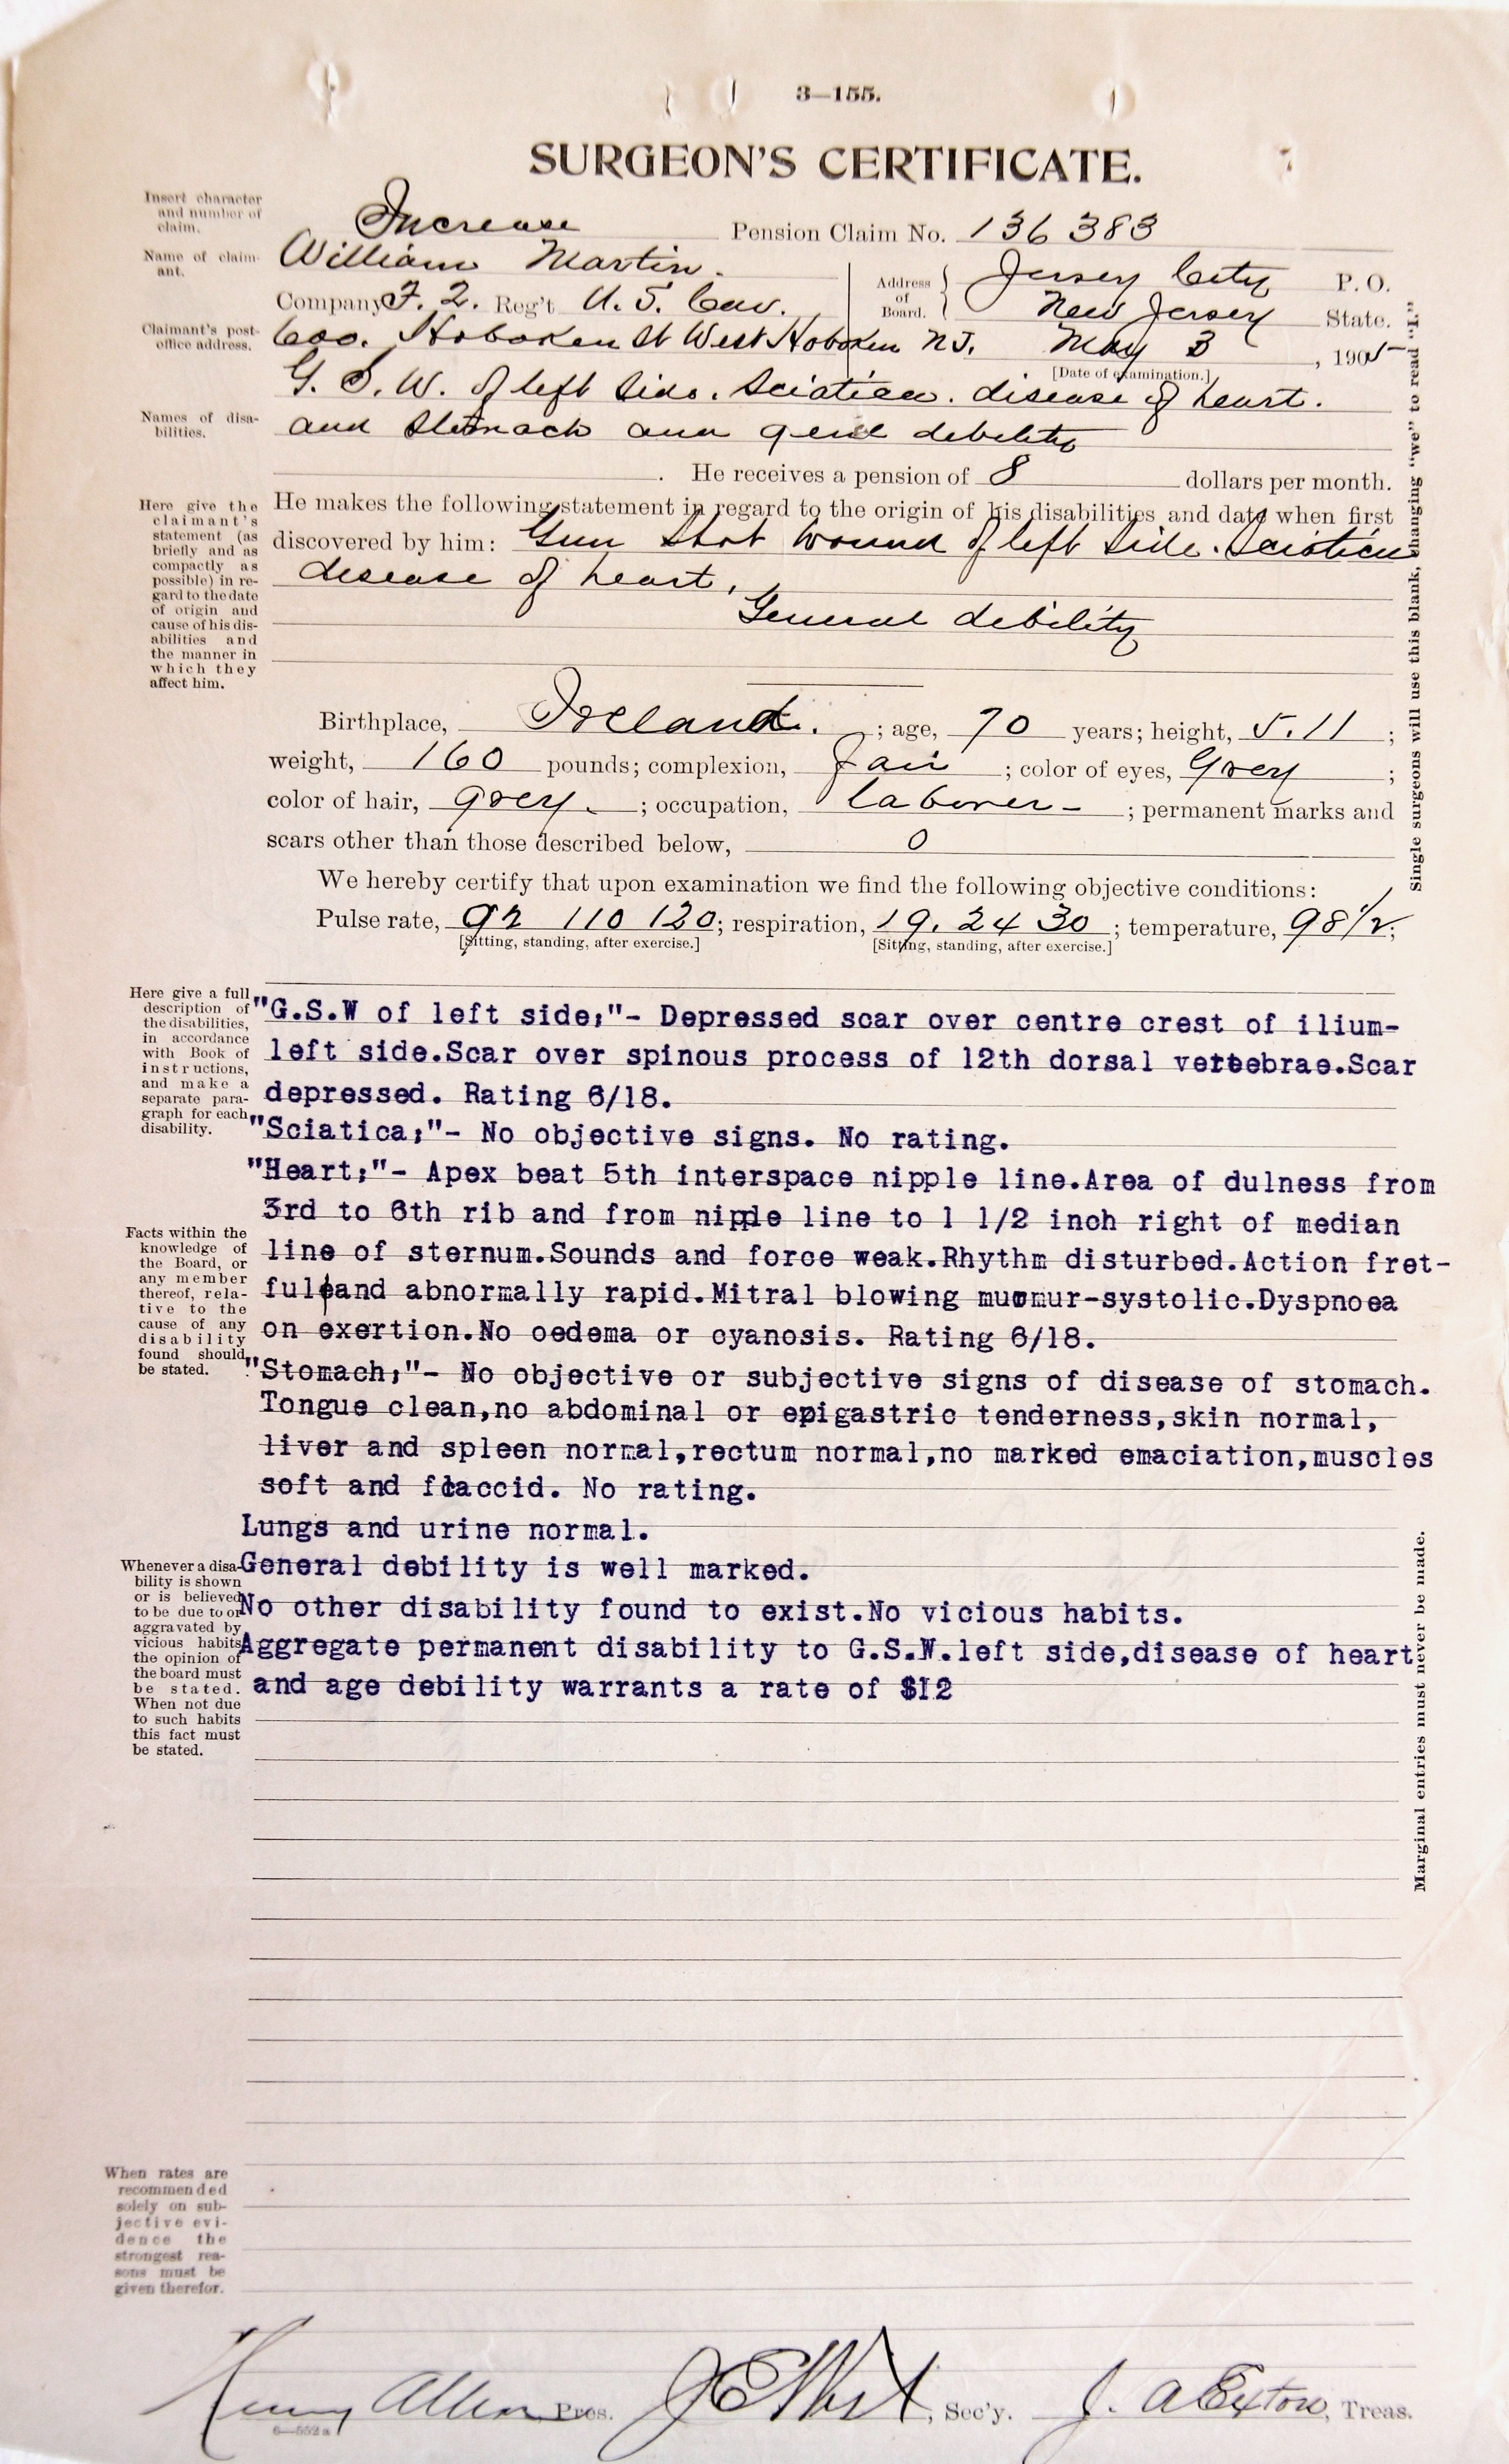 3—155.
SURGEON'S CERTIFICATE.
Insert character and number of claim.
Increase Pension Claim No. 136 383
Name of claimant.
William Martin.
Address of Board. Jersey City P. O.
Company F. 2. Reg't U. S. Cav.
New Jersey State.
Claimant's post-office address.
600. Hoboken St West Hoboken NJ. May 3, 1905
[Date of examination.]
Names of disabilities.
G. S. W. of left side. Sciatica. disease of heart.
and stomach and genl debility
He receives a pension of 8 dollars per month.
Here give the claimant's statement (as briefly and as compactly as possible) in regard to the date of origin and cause of his disabilities and the manner in which they affect him.
He makes the following statement in regard to the origin of his disabilities and date when first
discovered by him: Gun shot wound of left side. Sciatica
disease of heart,
General debility
Birthplace, Ireland. ; age, 70 years; height, 5.11 ;
weight, 160 pounds; complexion, fair ; color of eyes, Grey ;
color of hair, grey. ; occupation, laborer - ; permanent marks and
scars other than those described below, 0
We hereby certify that upon examination we find the following objective conditions:
Pulse rate, 92 110 120; respiration, 19. 24 30 ; temperature, 98 1/2;
[Sitting, standing, after exercise.] [Sitting, standing, after exercise.]
Here give a full description of the disabilities, in accordance with Book of instructions, and make a separate paragraph for each disability.
"G.S.W of left side;"- Depressed scar over centre crest of ilium-
left side.Scar over spinous process of 12th dorsal vertebrae.Scar
depressed. Rating 6/18.
"Sciatica;"- No objective signs. No rating.
"Heart;"- Apex beat 5th interspace nipple line.Area of dulness from
3rd to 6th rib and from nipple line to 1 1/2 inch right of median
line of sternum.Sounds and force weak.Rhythm disturbed.Action fret-
ful and abnormally rapid.Mitral blowing murmur-systolic.Dyspnoea
on exertion.No oedema or cyanosis. Rating 6/18.
Facts within the knowledge of the Board, or any member thereof, relative to the cause of any disability found should be stated.
"Stomach;"- No objective or subjective signs of disease of stomach.
Tongue clean,no abdominal or epigastric tenderness,skin normal,
liver and spleen normal,rectum normal,no marked emaciation,muscles
soft and flaccid. No rating.
Lungs and urine normal.
General debility is well marked.
No other disability found to exist.No vicious habits.
Aggregate permanent disability to G.S.W.left side,disease of heart
and age debility warrants a rate of $I2
Whenever a disability is shown or is believed to be due to or aggravated by vicious habits the opinion of the board must be stated. When not due to such habits this fact must be stated.
When rates are recommended solely on subjective evidence the strongest reasons must be given therefor.
Single surgeons will use this blank, changing "we" to read "I."
Marginal entries must never be made.
Henry Allen Pres. J E West, Sec'y. J. A Exton, Treas.
6—552 a